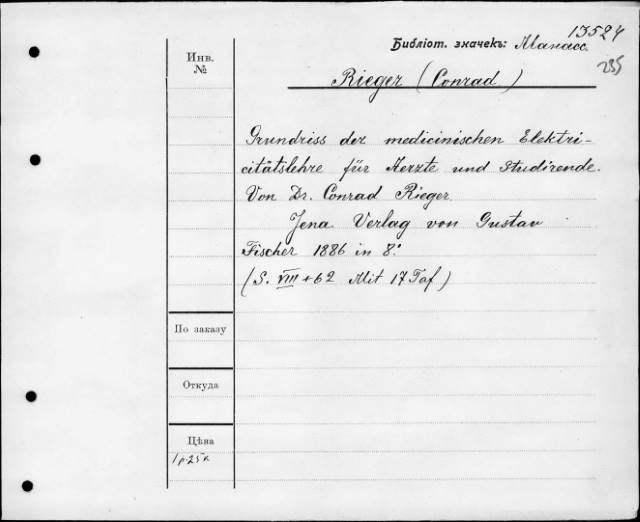 13524
Библіот. значекъ: Манасс.
235
Инв.
№
Rieger (Conrad)
Grundriss der medicinischen Elektri-
citätslehre für Aerzte und Studirende.
Von Dr. Conrad Rieger
Jena Verlag von Gustav
Fischer 1886 in 8°
(S. VIII + 62 Mit 17 Taf)
По заказу
Откуда
Цѣна
1 р. 25 к.